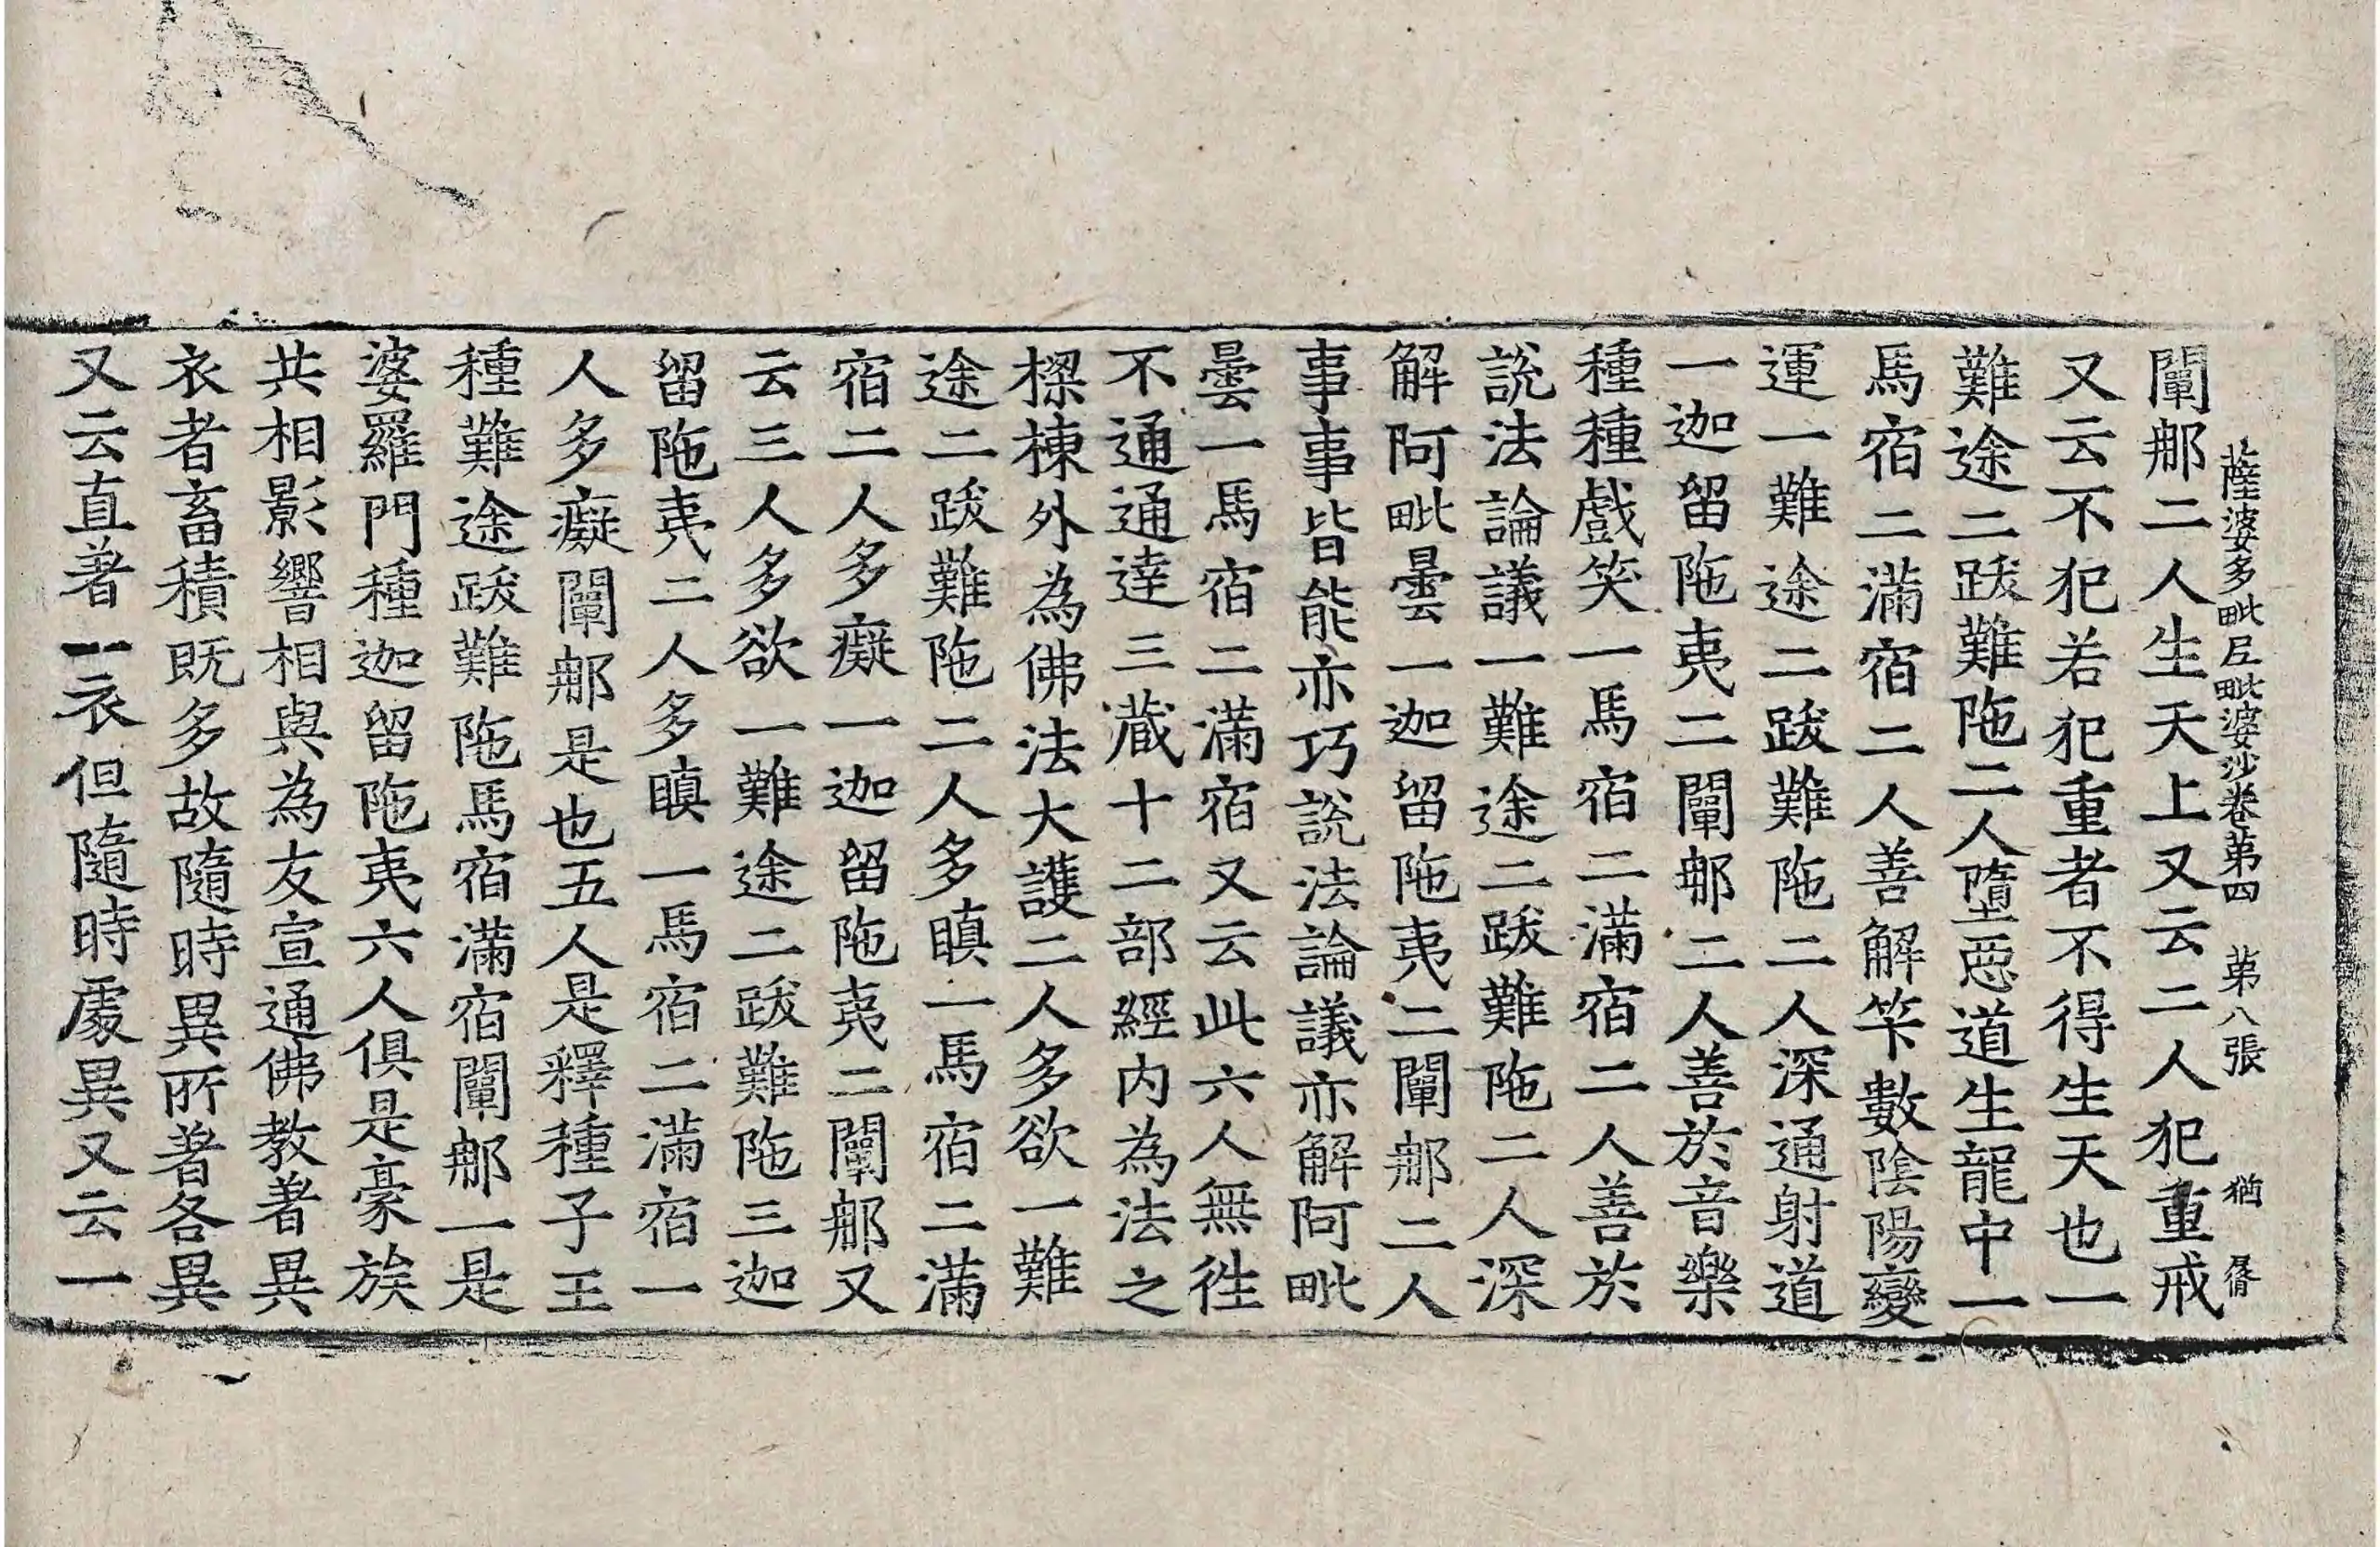 薩婆多毗尼毗婆沙卷第四　第八張　猶　㞕
闡那二人生天上又云二人犯重戒
又云不犯若犯重者不得生天也一
難途二跋難陁二人墮惡道生龍中一
馬宿二滿宿二人善解筭數陰陽變
運一難途二跋難陁二人深通射道
一迦留陁夷二闡那二人善於音樂
種種戲笑一馬宿二滿宿二人善於
說法論議一難途二跋難陁二人深
解阿毗曇一迦留陁夷二闡那二人
事事皆能亦巧說法論議亦解阿毗
曇一馬宿二滿宿又云此六人無徃
不通通達三藏十二部經內為法之
樑棟外為佛法大護二人多欲一難
途二跋難陁二人多瞋一馬宿二滿
宿二人多癡一迦留陁夷二闡那又
云三人多欲一難途二跋難陁三迦
留陁夷二人多瞋一馬宿二滿宿一
人多癡闡那是也五人是釋種子王
種難途跋難陁馬宿滿宿闡那一是
婆羅門種迦留陁夷六人俱是豪族
共相影響相與為友宣通佛教著異
衣者畜積既多故隨時異所著各異
又云直著一衣但隨時處異又云一